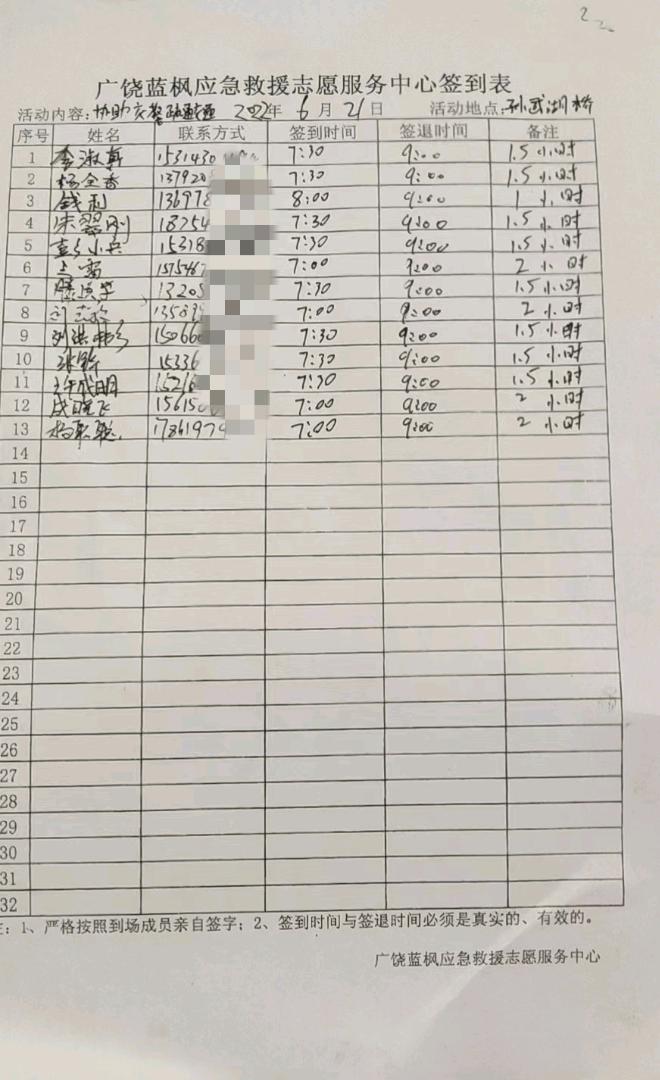 广饶蓝枫应急救援志愿服务中心签到表
活动内容:协助交警 2022年 6月 21日 活动地点:孙武湖桥
序号 姓名 联系方式 签到时间 签退时间 备注
1 李淑真 1531430 7:30 9:00 1.5小时
2 杨全香 137920 7:30 9:00 1.5小时
3 钱利 136978 8:00 9:00 1小时
4 刚 18254 7:30 9:00 1.5小时
5 15318 7:30 9:00 1.5小时
6 1575467 7:00 9:00 2小时
7 13205 7:30 9:00 1.5小时
8 135899 7:00 9:00 2小时
9 15066 7:30 9:00 1.5小时
10 15336 7:30 9:00 1.5小时
11 成明 15216 7:30 9:00 1.5小时
12 成晓飞 1561 7:00 9:00 2小时
13 1786197 7:00 9:00 2小时
14
15
16
17
18
19
20
21
22
23
24
25
26
27
28
29
30
31
32
注:1、严格按照到场成员亲自签字;2、签到时间与签退时间必须是真实的、有效的。
广饶蓝枫应急救援志愿服务中心